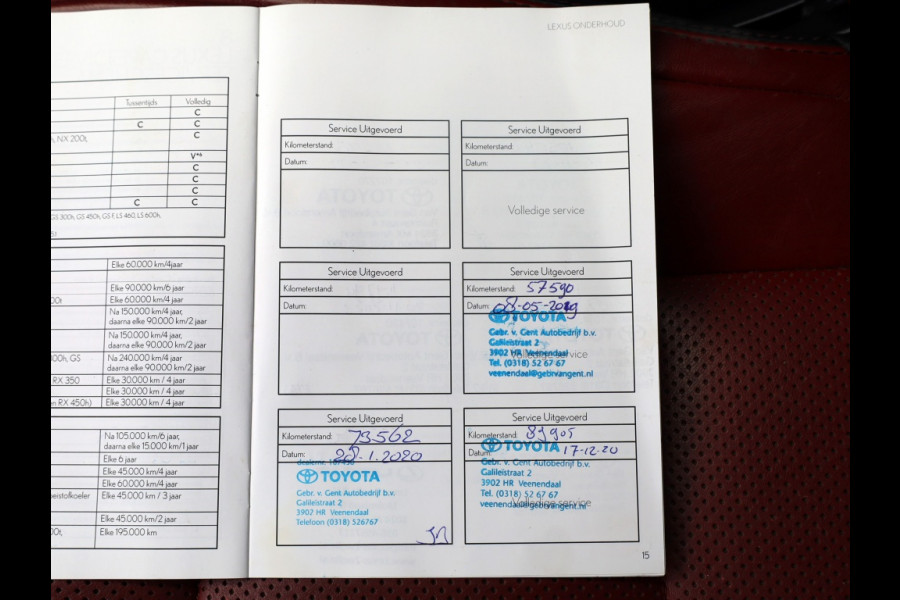 LEXUS ONDERHOUD
Tussentijds Volledig
C
C C
NX 200t, C
V*4
C
C
C
C C
GS 300h, GS 450h, GS F, LS 460, LS 600h,
Elke 60.000 km/4jaar
Elke 90.000 km/6 jaar
Elke 60.000 km/4 jaar
Na 150.000 km/4 jaar,
daarna elke 90.000 km/2 jaar
Na 150.000 km/4 jaar,
daarna elke 90.000 km/2 jaar
00h, GS Na 240.000 km/4 jaar
daarna elke 90.000 km/2 jaar
RX 350 Elke 30.000 km / 4 jaar
Elke 30.000 km / 4 jaar
RX 450h) Elke 30.000 km / 4 jaar
Na 105.000 km/6 jaar,
daarna elke 15.000 km/1 jaar
Elke 6 jaar
Elke 45.000 km/4 jaar
Elke 60.000 km/4 jaar
Elke 45.000 km / 3 jaar
Elke 45.000 km/2 jaar
Elke 195.000 km
Service Uitgevoerd
Kilometerstand:
Datum:
Service Uitgevoerd
Kilometerstand:
Datum:
Volledige service
Service Uitgevoerd
Kilometerstand:
Datum:
Service Uitgevoerd
Kilometerstand: 57590
Datum: 08-05-2019
TOYOTA
Gebr. v. Gent Autobedrijf b.v.
Galileistraat 2
3902 HR Veenendaal
Volledige service
Tel. (0318) 52 67 67
veenendaal@gebrvangent.nl
Service Uitgevoerd
Kilometerstand: 73562
Datum: 28-1-2020
TOYOTA
Gebr. v. Gent Autobedrijf b.v.
Galileistraat 2
3902 HR Veenendaal
Telefoon (0318) 526767
Service Uitgevoerd
Kilometerstand: 83905
Datum: 17-12-20
TOYOTA
Gebr. v. Gent Autobedrijf b.v.
Galileistraat 2
3902 HR Veenendaal
Tel. (0318) 52 67 67
Volledige service
veenendaal@gebrvangent.nl
15